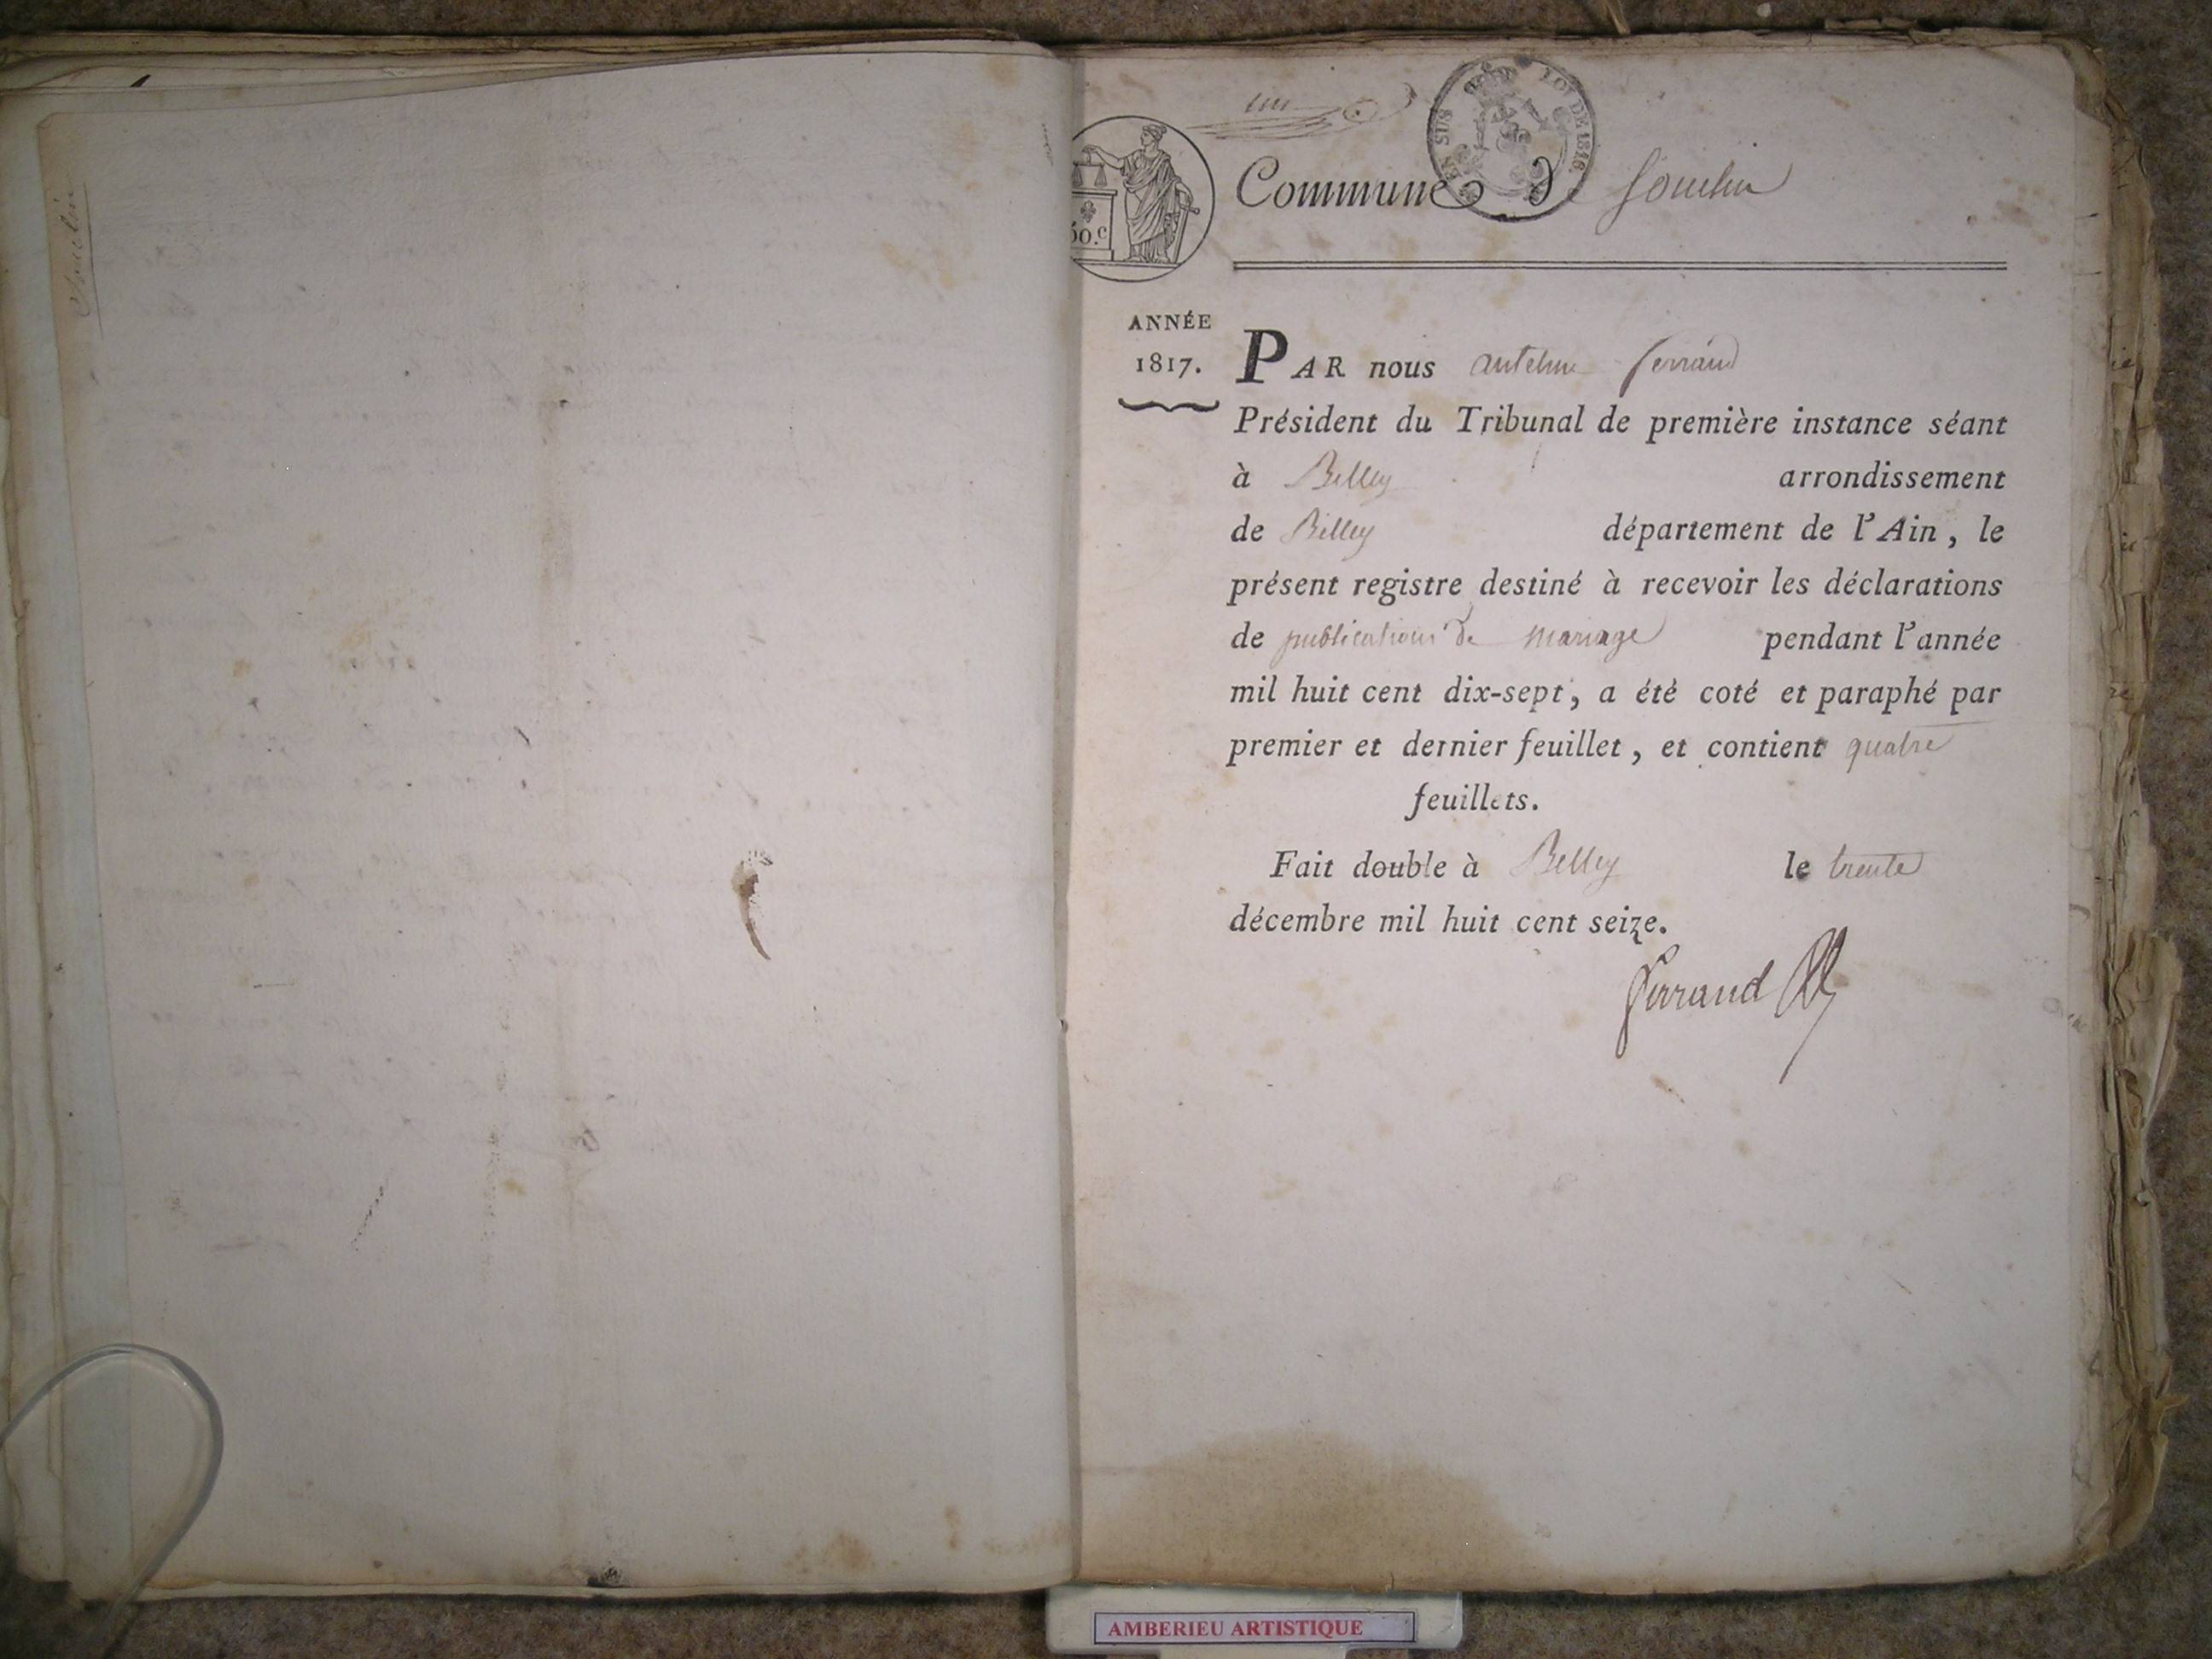 Souclin
un
Commune de Souclin
50.c
LOI DE 1816.
EN SUS
ANNÉE
1817.
PAR nous antelme ferrand
Président du Tribunal de première instance séant
à Belley arrondissement
de Belley département de l'Ain, le
présent registre destiné à recevoir les déclarations
de publications de mariage pendant l'année
mil huit cent dix-sept, a été coté et paraphé par
premier et dernier feuillet, et contient quatre
feuillets.
Fait double à Belley le trente
décembre mil huit cent seize.
Ferrand
AMBERIEU ARTISTIQUE